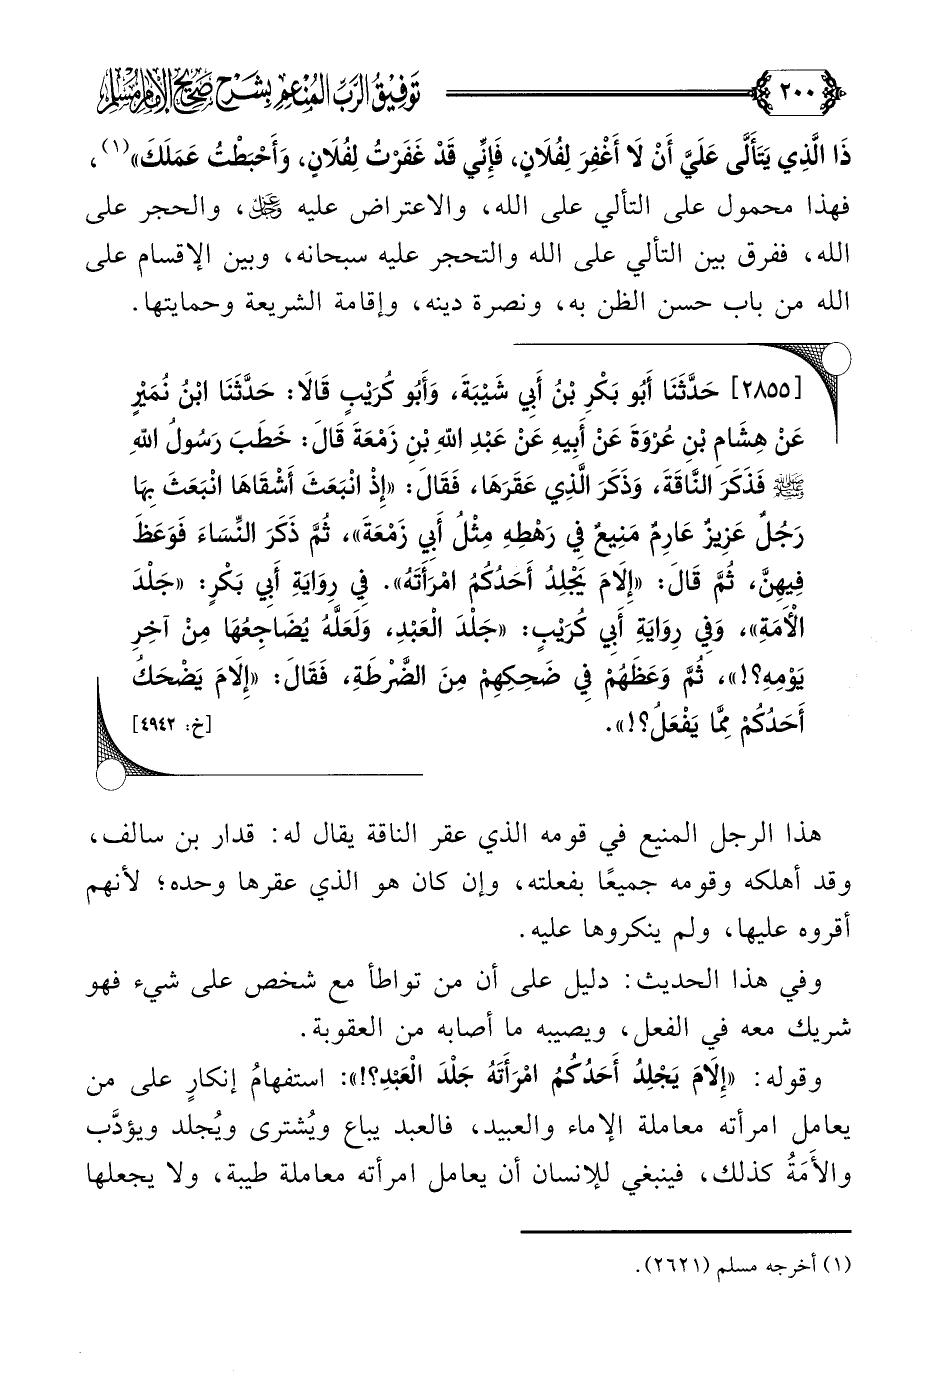 ٢٠٠ توفيق الرب المنعم بشرح صحيح الإمام مسلم
ذَا الَّذِي يَتَأَلَّى عَلَيَّ أَنْ لَا أَغْفِرَ لِفُلَانٍ، فَإِنِّي قَدْ غَفَرْتُ لِفُلَانٍ، وَأَحْبَطْتُ عَمَلَكَ»(١)،
فهذا محمول على التألي على الله، والاعتراض عليه عز وجل، والحجر على
الله، ففرق بين التألي على الله والتحجر عليه سبحانه، وبين الإقسام على
الله من باب حسن الظن به، ونصرة دينه، وإقامة الشريعة وحمايتها.
[٢٨٥٥] حَدَّثَنَا أَبُو بَكْرِ بْنُ أَبِي شَيْبَةَ، وَأَبُو كُرَيْبٍ قَالَا: حَدَّثَنَا ابْنُ نُمَيْرٍ
عَنْ هِشَامِ بْنِ عُرْوَةَ عَنْ أَبِيهِ عَنْ عَبْدِ اللهِ بْنِ زَمْعَةَ قَالَ: خَطَبَ رَسُولُ اللهِ
ﷺ فَذَكَرَ النَّاقَةَ، وَذَكَرَ الَّذِي عَقَرَهَا، فَقَالَ: «إِذْ انْبَعَثَ أَشْقَاهَا انْبَعَثَ بِهَا
رَجُلٌ عَزِيزٌ عَارِمٌ مَنِيعٌ فِي رَهْطِهِ مِثْلُ أَبِي زَمْعَةَ»، ثُمَّ ذَكَرَ النِّسَاءَ فَوَعَظَ
فِيهِنَّ، ثُمَّ قَالَ: «إِلَامَ يَجْلِدُ أَحَدُكُمُ امْرَأَتَهُ». فِي رِوَايَةِ أَبِي بَكْرٍ: «جَلْدَ
الْأَمَةِ»، وَفِي رِوَايَةِ أَبِي كُرَيْبٍ: «جَلْدَ الْعَبْدِ، وَلَعَلَّهُ يُضَاجِعُهَا مِنْ آخِرِ
يَوْمِهِ؟!»، ثُمَّ وَعَظَهُمْ فِي ضَحِكِهِمْ مِنَ الضَّرْطَةِ، فَقَالَ: «إِلَامَ يَضْحَكُ
أَحَدُكُمْ مِمَّا يَفْعَلُ؟!». [خ: ٤٩٤٢]
هذا الرجل المنيع في قومه الذي عقر الناقة يقال له: قدار بن سالف،
وقد أهلكه وقومه جميعًا بفعلته، وإن كان هو الذي عقرها وحده؛ لأنهم
أقروه عليها، ولم ينكروها عليه.
وفي هذا الحديث: دليل على أن من تواطأ مع شخص على شيء فهو
شريك معه في الفعل، ويصيبه ما أصابه من العقوبة.
وقوله: «إِلَامَ يَجْلِدُ أَحَدُكُمُ امْرَأَتَهُ جَلْدَ الْعَبْدِ؟!»: استفهامُ إنكارٍ على من
يعامل امرأته معاملة الإماء والعبيد، فالعبد يباع ويُشترى ويُجلد ويؤدَّب
والأَمَةُ كذلك، فينبغي للإنسان أن يعامل امرأته معاملة طيبة، ولا يجعلها
(١) أخرجه مسلم (٢٦٢١).